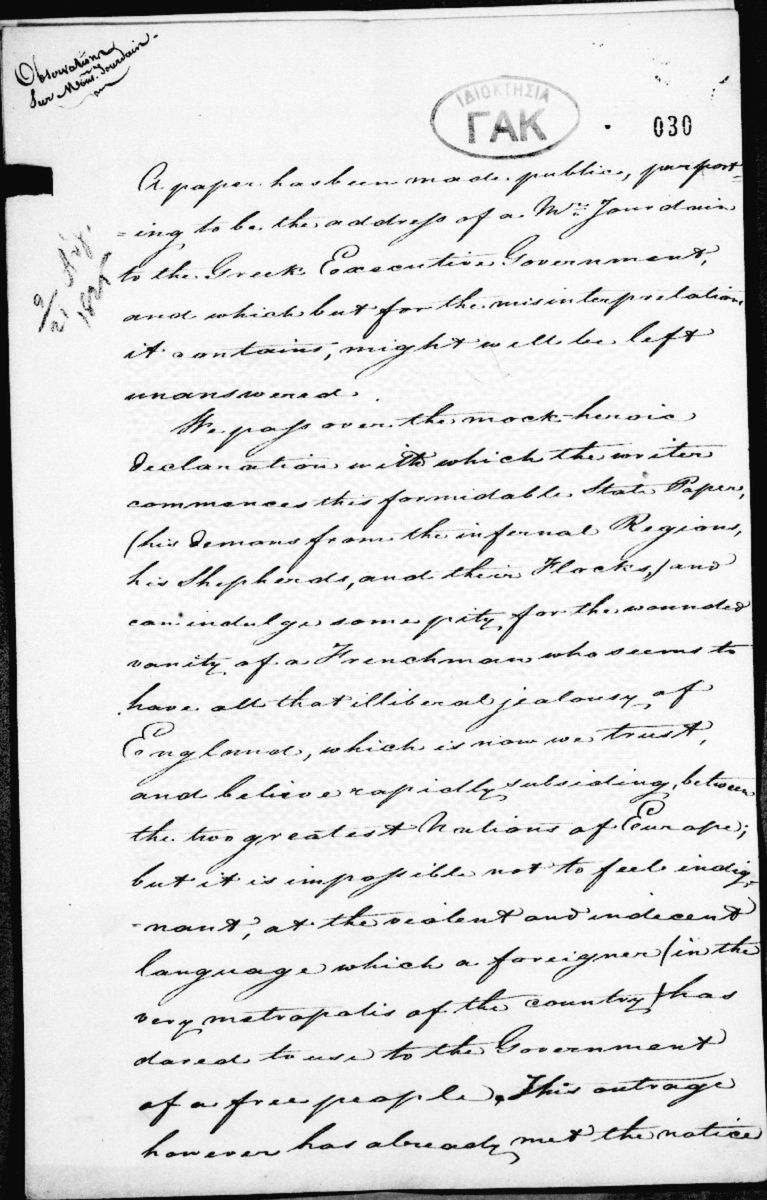 Observations
Sur Mons. Jourdain.
ΙΔΙΟΚΤΗΣΙΑ
ΓΑΚ
030
9/21 Αὐγ.
1825
A paper has been made public, purport=
=ing to be the address of a Mr. Jourdain
to the Greek Executive Government,
and which but for the misinterpretation
it contains, might well be left
unanswered.
We pass over the mock-heroic
declaration with which the writer
commences this formidable State Paper,
(his demons from the infernal Regions,
his Shepherds, and their Flocks,) and
can indulge some pity for the wounded
vanity of a Frenchman who seems to
have all that illiberal jealousy of
England, which is now we trust,
and believe rapidly subsiding, between
the two greatest Nations of Europe;
but it is impossible not to feel indig-
-nant, at the violent and indecent
language which a foreigner (in the
very metropolis of the country) has
dared to use to the Government
of a free people. This outrage
however has already met the notice